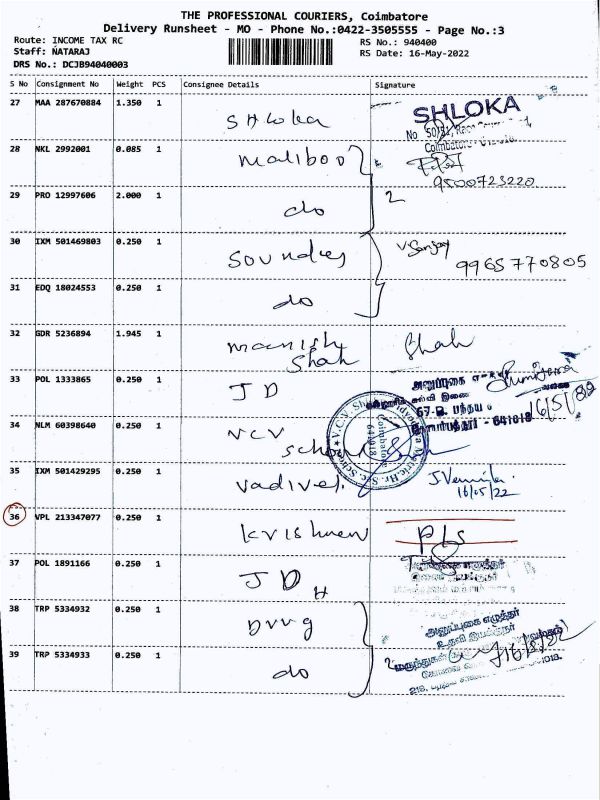 THE PROFESSIONAL COURIERS, Coimbatore
Delivery Runsheet - MO - Phone No.:0422-3505555 - Page No.:3
Route: INCOME TAX RC
RS No.: 940400
Staff: NATARAJ
RS Date: 16-May-2022
DRS No.: DCJB94040003
S No Consignment No Weight PCS Consignee Details Signature
27 MAA 287670884 1.350 1 Shloka SHLOKA
28 NKL 2992001 0.085 1 maliboo
9500723220
29 PRO 12997606 2.000 1 do 2
30 IXM 501469803 0.250 1 V. Sanjay
9965770805
31 EDQ 18024553 0.250 1 do
32 GDR 5236894 1.945 1 manish Shah Shah
33 POL 1333865 0.250 1 JD
அனுப்புகை
67-B, பந்தய
641018
16/5/22
34 NLM 60398640 0.250 1 VCV School
Coimbatore
641018
35 IXM 501429295 0.250 1 Vadivel
16/05/22
36 VPL 213347077 0.250 1
37 POL 1891166 0.250 1 JD H
38 TRP 5334932 0.250 1 Drug
அனுப்புகை எழுத்தர்
உதவி இயக்குநர்
39 TRP 5334933 0.250 1 do